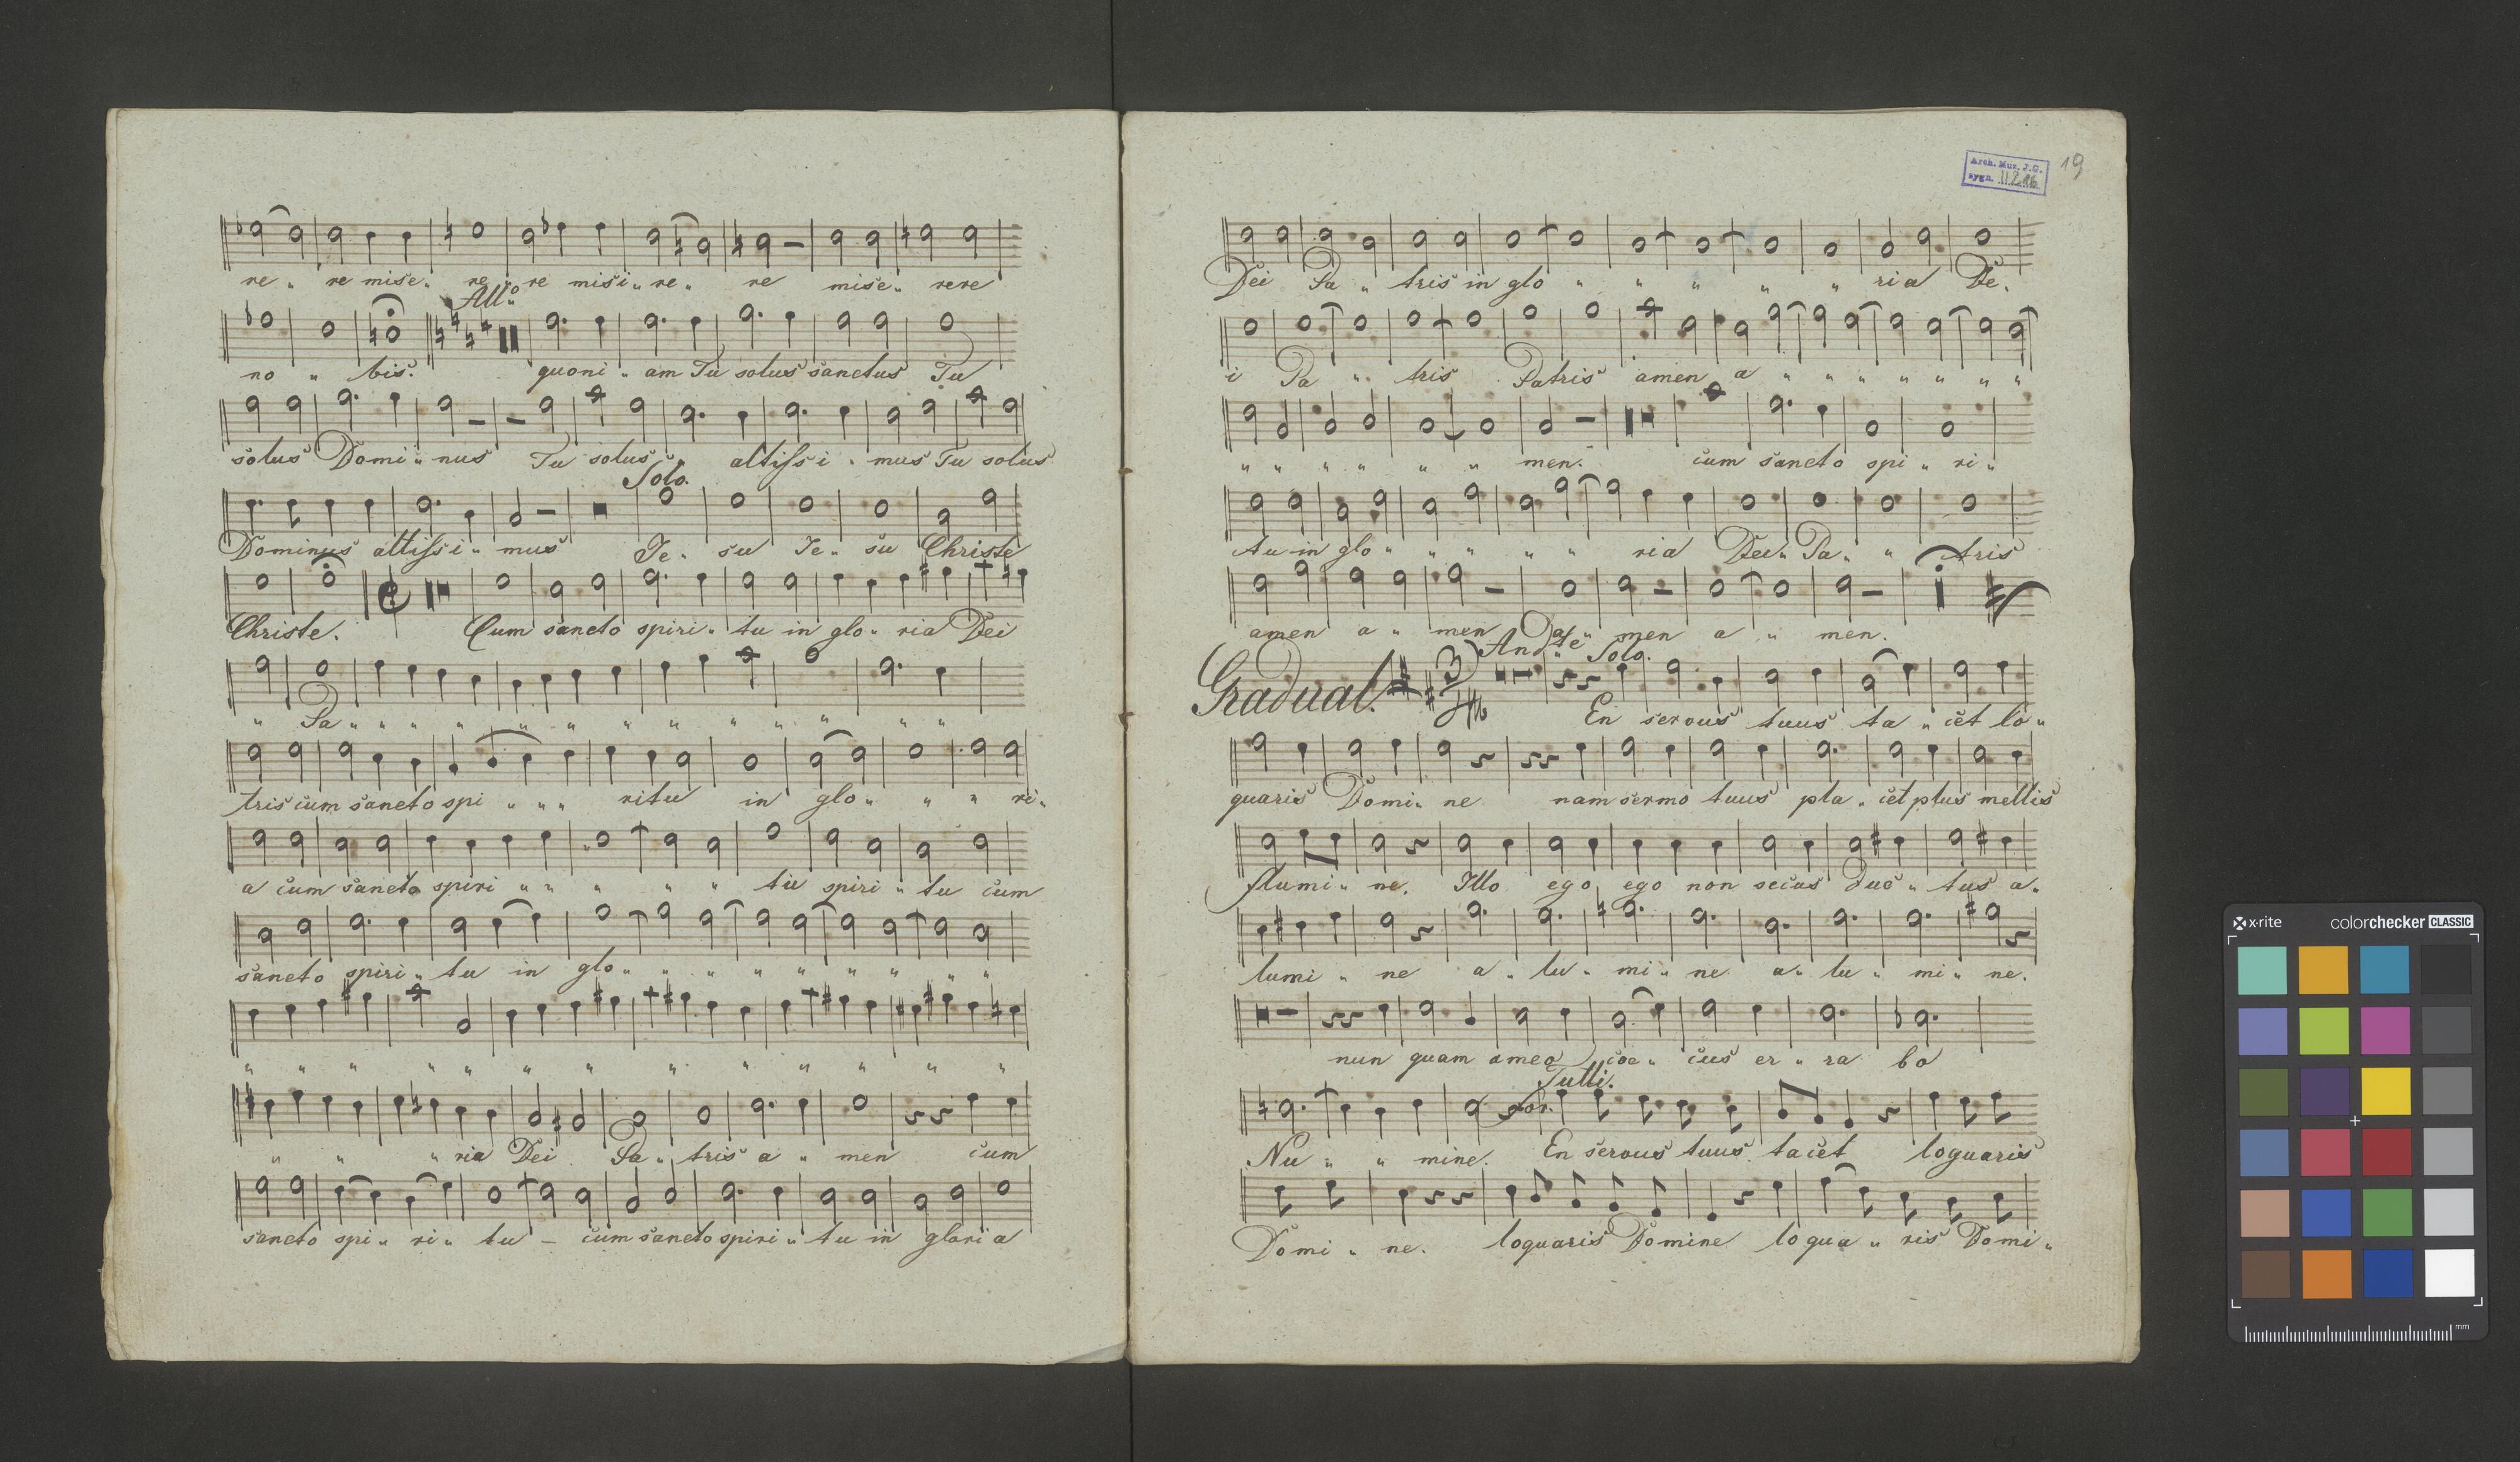 re „ re mise „ re „ re misi „ re „ re mise „ rere
All.o
no „ bis. quoni „ am Tu solus sanctus Tu
solus Domi „ nus Tu solus altissi „ mus Tu solus
Solo.
Dominus altissi „ mus Je „ su Je „ su Christe
Christe. Cum sancto spiri „ tu in glo „ ria Dei
„ Pa „ „ „ „ „ „ „ „ „ „ „ „ „
tris cum sancto spi „ „ „ ritu in glo „ „ „ ri „
a cum sancto spiri „ „ „ „ „ tu spiri „ tu cum
sancto spiri „ tu in glo „ „ „ „ „ „ „ „
„ „ „ „ „ „ „ „ „ „ „ „ „
„ „ „ ria Dei Pa „ tris a „ men cum
sancto spi „ ri „ tu – cum sancto spiri „ tu in gloria
Arch. Muz. J.G.
sygn. II 216
19
Dei Pa „ tris in glo „ „ „ „ „ ria De „
i Pa „ tris Patris amen a „ „ „ „ „ „ „
„ „ „ „ „ „ men. cum sancto spi „ ri „
tu in glo „ „ „ „ „ ria Dei „ Pa „ „ tris
amen a „ men a „ men a „ men.
And.te Solo.
Gradual. 3/4 En servus tuus ta „ cet lo „
quaris Domi „ ne nam sermo tuus pla „ cet plus mellis
flumi „ ne. Illo ego ego non secus duc „ tus a „
lumi „ ne a „ lu „ mi „ ne a „ lu „ mi „ ne.
nun quam ameo coe „ cus er „ ra bo
Tutti.
for.
Nu „ „ mine. En servus tuus tacet loquaris
Domi „ ne. loquaris Domine loqua „ ris Domi „
x-rite colorchecker CLASSIC
mm